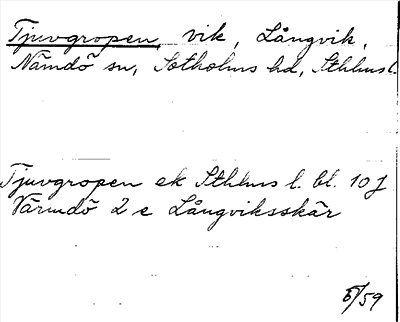 Tjuvgropen, vik, Långvik,
Nämdö sn, Sotholms hd, Sthlms l.
Tjuvgropen ek Sthlms l. bl. 10 J
Värmdö 2 e Långviksskär
/59